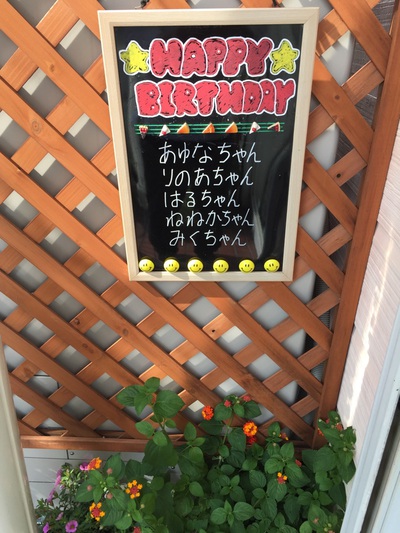 HAPPY
BIRTHDAY
あゆなちゃん
りのあちゃん
はるちゃん
ねねかちゃん
みくちゃん